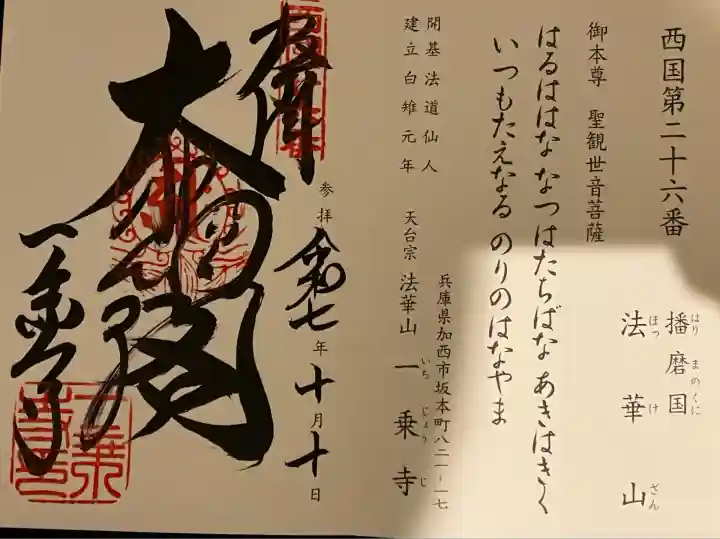 西国第二十六番
播磨国
はり まのくに
法華山
ほっ け ざん
御本尊 聖観世音菩薩
はるははな なつはたちばな あきはきく
いつもたえなる のりのはなやま
開基 法道仙人
建立 白雉元年
兵庫県加西市坂本町八二一-一七
天台宗 法華山 一乗寺
いち じょう じ
参拝 令和七年 十月十日
大悲閣